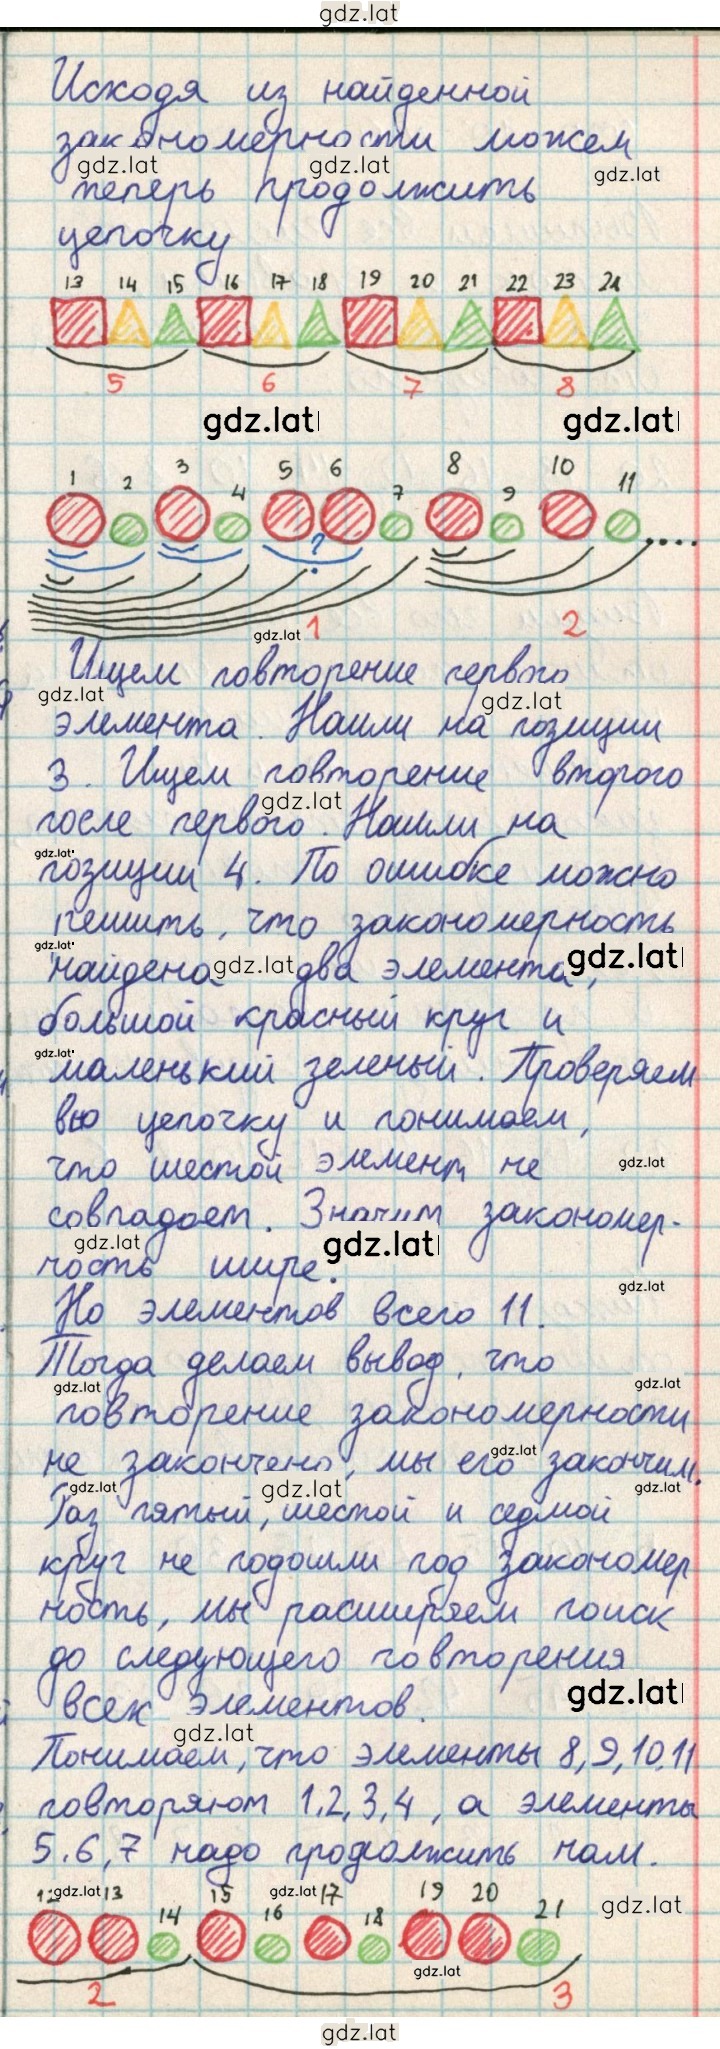 gdz.lat
Исходя из найденной
закономерности можем
gdz.lat gdz.lat gdz.lat
теперь продолжить
цепочку
13 14 15 16 17 18 19 20 21 22 23 24
5 6 7 8
gdz.lat gdz.lat
1 2 3 4 5 6 7 8 9 10 11
?
1 2
gdz.lat
Ищем повторение первого
gdz.lat gdz.lat
элемента. Нашли на позиции
3. Ищем повторение второго
gdz.lat
после первого. Нашли на
gdz.lat
позиции 4. По ошибке можно
решить, что закономерность
gdz.lat
найдена gdz.lat два элемента, gdz.lat
большой красный круг и
gdz.lat
маленький зеленый. Проверяем
всю цепочку и понимаем,
что шестой элемент не gdz.lat
совпадает. Значит закономер-
gdz.lat gdz.lat
ность шире.
gdz.lat
Но элементов всего 11.
Тогда делаем вывод, что
gdz.lat gdz.lat
повторение закономерности
не закончено, мы его gdz.lat закончим.
gdz.lat gdz.lat gdz.lat
Раз пятый, шестой и седмой
круг не подошли под закономер
ность, мы расширяем поиск
до следующего повторения
всех элементов. gdz.lat
gdz.lat
Понимаем, что элементы 8,9,10,11
повторяют 1,2,3,4, а элементы
5,6,7 надо продолжить нам.
12 gdz.lat 13 14 15 16 gdz.lat 17 18 19 20 21 gdz.lat
gdz.lat
2 3
gdz.lat